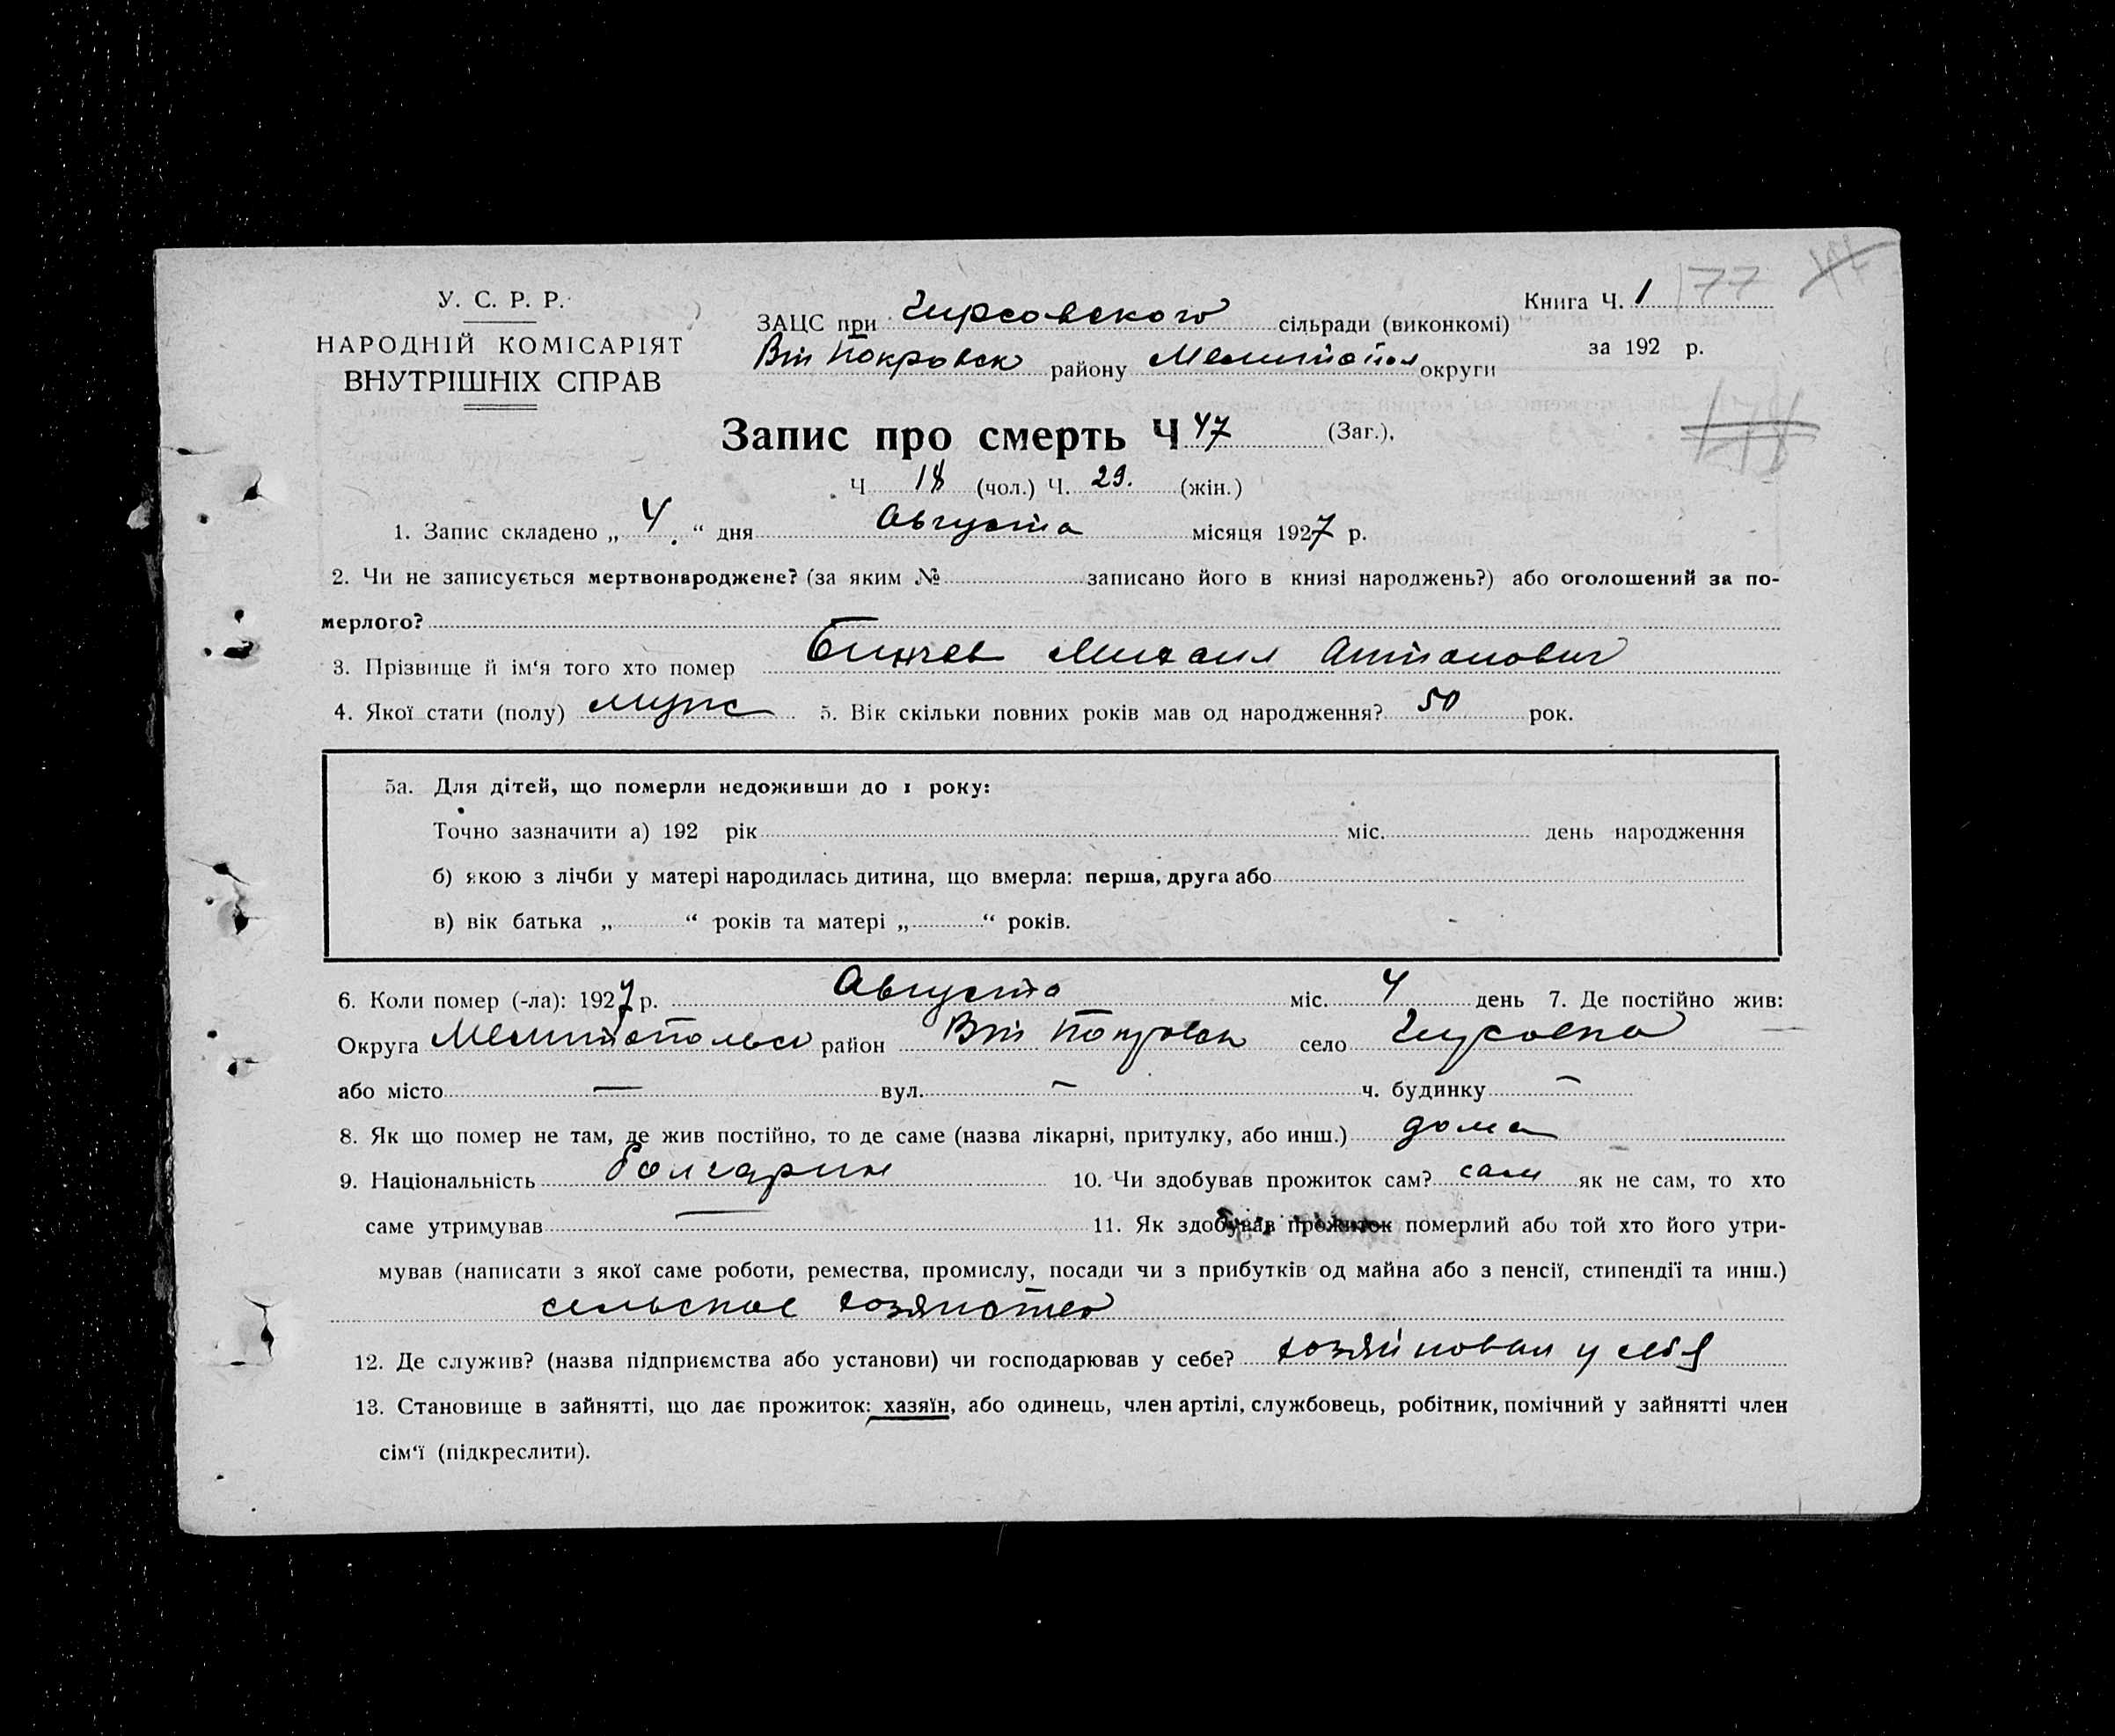 У. С. Р. Р.
НАРОДНІЙ КОМІСАРІЯТ
ВНУТРІШНІХ СПРАВ
ЗАЦС при Гирсовского сільради (виконкомі)
Вт Покровск району Мелитопол округи
Книга Ч. 1 177
за 192 р.
Запис про смерть Ч 47 (Заг.).
178
Ч. 18 (чол.) Ч. 29. (жін.)
1. Запис складено „ 4 “ дня Августа місяця 1927 р.
2. Чи не записується мертвонароджене? (за яким № записано його в книзі народжень?) або оголошений за по-
мерлого?
3. Прізвище й ім‘я того хто помер Михаил
4. Якої стати (полу) мужс 5. Вік скільки повних років мав од народження? 50 рок.
5а. Для дітей, що померли недоживши до 1 року:
Точно зазначити а) 192 рік міс. день народження
б) якою з лічби у матері народилась дитина, що вмерла: перша, друга або
в) вік батька „ “ років та матері „ “ років.
6. Коли помер (-ла): 1927 р. Августа міс. 4 день 7. Де постійно жив:
Округа Мелитопольс район Вт Покровск село Гирсовка
або місто — вул. — ч. будинку —
8. Як що помер не там, де жив постійно, то де саме (назва лікарні, притулку, або инш.) дома
9. Національність болгарин 10. Чи здобував прожиток сам? сам як не сам, то хто
саме утримував — 11. Як здобував прожиток померлий або той хто його утри-
мував (написати з якої саме роботи, ремества, промислу, посади чи з прибутків од майна або з пенсії, стипендії та инш.)
сельское хозяйство
12. Де служив? (назва підприємства або установи) чи господарював у себе? хозяйновал у себя
13. Становище в зайнятті, що дає прожиток: хазяїн, або одинець, член артілі, службовець, робітник, помічний у зайнятті член
сім‘ї (підкреслити).